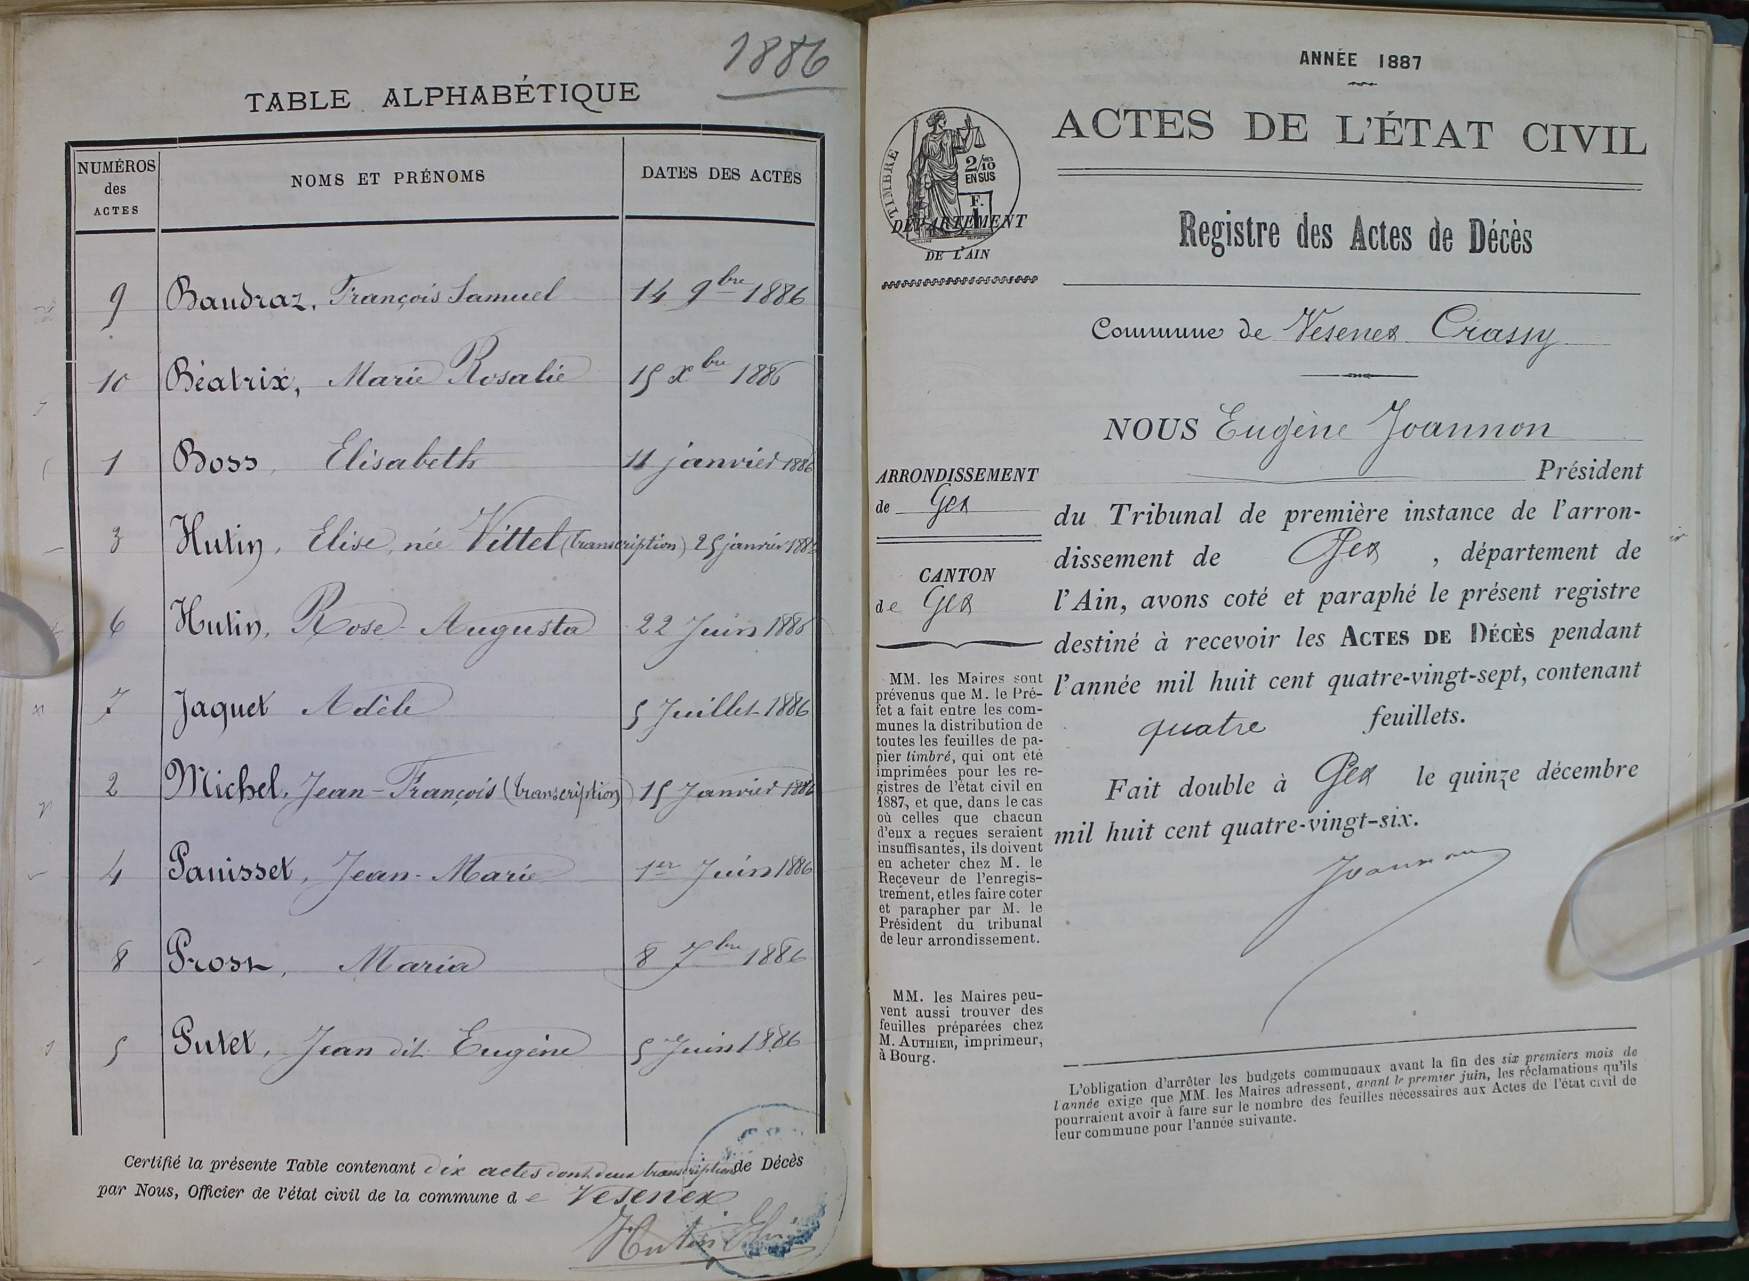 1886
TABLE ALPHABÉTIQUE
NUMÉROS des ACTES NOMS ET PRÉNOMS DATES DES ACTES
9 Baudraz, François Samuel 14 9bre 1886
10 Béatrix, Marie Rosalie 15 Xbre 1886
1 Boss, Elisabeth 11 janvier 1886
3 Hutin, Elise, née Vittet (transcription) 25 janvier 1886
6 Hutin, Rose Augusta 22 Juin 1886
7 Jaquet Adèle 5 Juillet 1886
2 Michel, Jean-François (transcription) 15 Janvier 1886
4 Panisset, Jean-Marie 1er Juin 1886
8 Prost, Maria 8 7bre 1886
5 Putet, Jean dit Eugène 5 Juin 1886
Certifié la présente Table contenant dix actes dont deux transcriptions de Décès
par Nous, Officier de l'état civil de la commune de Vesenex
Hutin
ANNÉE 1887
ACTES DE L'ÉTAT CIVIL
TIMBRE
2/10 EN SUS
F. 1
DÉPARTEMENT
DE L'AIN
Registre des Actes de Décès
Commune de Vesenex Crassy
NOUS Eugène Joannon
Président
du Tribunal de première instance de l'arron-
dissement de Gex, département de
l'Ain, avons coté et paraphé le présent registre
destiné à recevoir les ACTES DE DÉCÈS pendant
l'année mil huit cent quatre-vingt-sept, contenant
quatre feuillets.
Fait double à Gex le quinze décembre
mil huit cent quatre-vingt-six.
Joannon
ARRONDISSEMENT
de Gex
CANTON
de Gex
MM. les Maires sont
prévenus que M. le Pré-
fet a fait entre les com-
munes la distribution de
toutes les feuilles de pa-
pier timbré, qui ont été
imprimées pour les re-
gistres de l'état civil en
1887, et que, dans le cas
où celles que chacun
d'eux a reçues seraient
insuffisantes, ils doivent
en acheter chez M. le
Receveur de l'enregis-
trement, et les faire coter
et parapher par M. le
Président du tribunal
de leur arrondissement.
MM. les Maires peu-
vent aussi trouver des
feuilles préparées chez
M. AUTHIER, imprimeur,
à Bourg.
L'obligation d'arrêter les budgets communaux avant la fin des six premiers mois de
l'année exige que MM. les Maires adressent, avant le premier juin, les réclamations qu'ils
pourraient avoir à faire sur le nombre des feuilles nécessaires aux Actes de l'état civil de
leur commune pour l'année suivante.